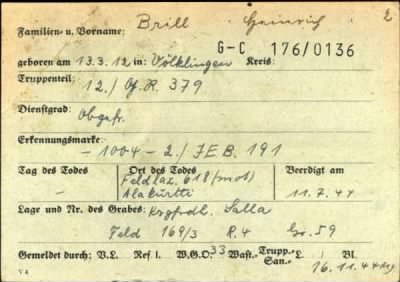 Familien- u. Vorname: Brill Heinrich 2
G-C 176/0136
geboren am 13.3.12 in: Völklingen Kreis:
Truppenteil:
12./Gr.R. 379
Dienstgrad:
Obgefr.
Erkennungsmarke:
- 1004 - 2./JEB. 191
Tag des Todes Ort des Todes Beerdigt am
- Feldlaz. 618 (mot) 11.7.44
Alakurtti
Lage und Nr. des Grabes: Salla
Feld 169/3 R.4 Gr. 59
Gemeldet durch: V.L. Ref I. W.G.O. 33 Wast.- Trupp.- San.- L. Bl.
16.11.44
V 4